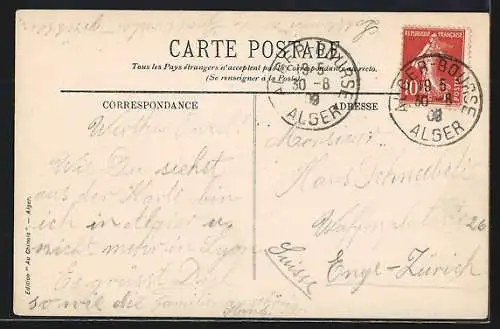 CARTE POSTALE
Tous les Pays étrangers n'acceptent pas la Correspondance au recto.
(Se renseigner à la Poste).
RÉPUBLIQUE FRANÇAISE
10
ALGER-BOURSE
19 5
30 -8
09
ALGER
ALGER-BOURSE
19 5
30 -8
09
ALGER
CORRESPONDANCE
ADRESSE
Werther
Wie Du siehst
aus der Karte bin
ich in Algier u.
nicht mehr in Lyon
Es grüsst Dich
sowie die Familie
Monsieur
Hans Schneebeli
26
Enge-Zürich
Suisse
Edition "Au Chinois". — Alger.